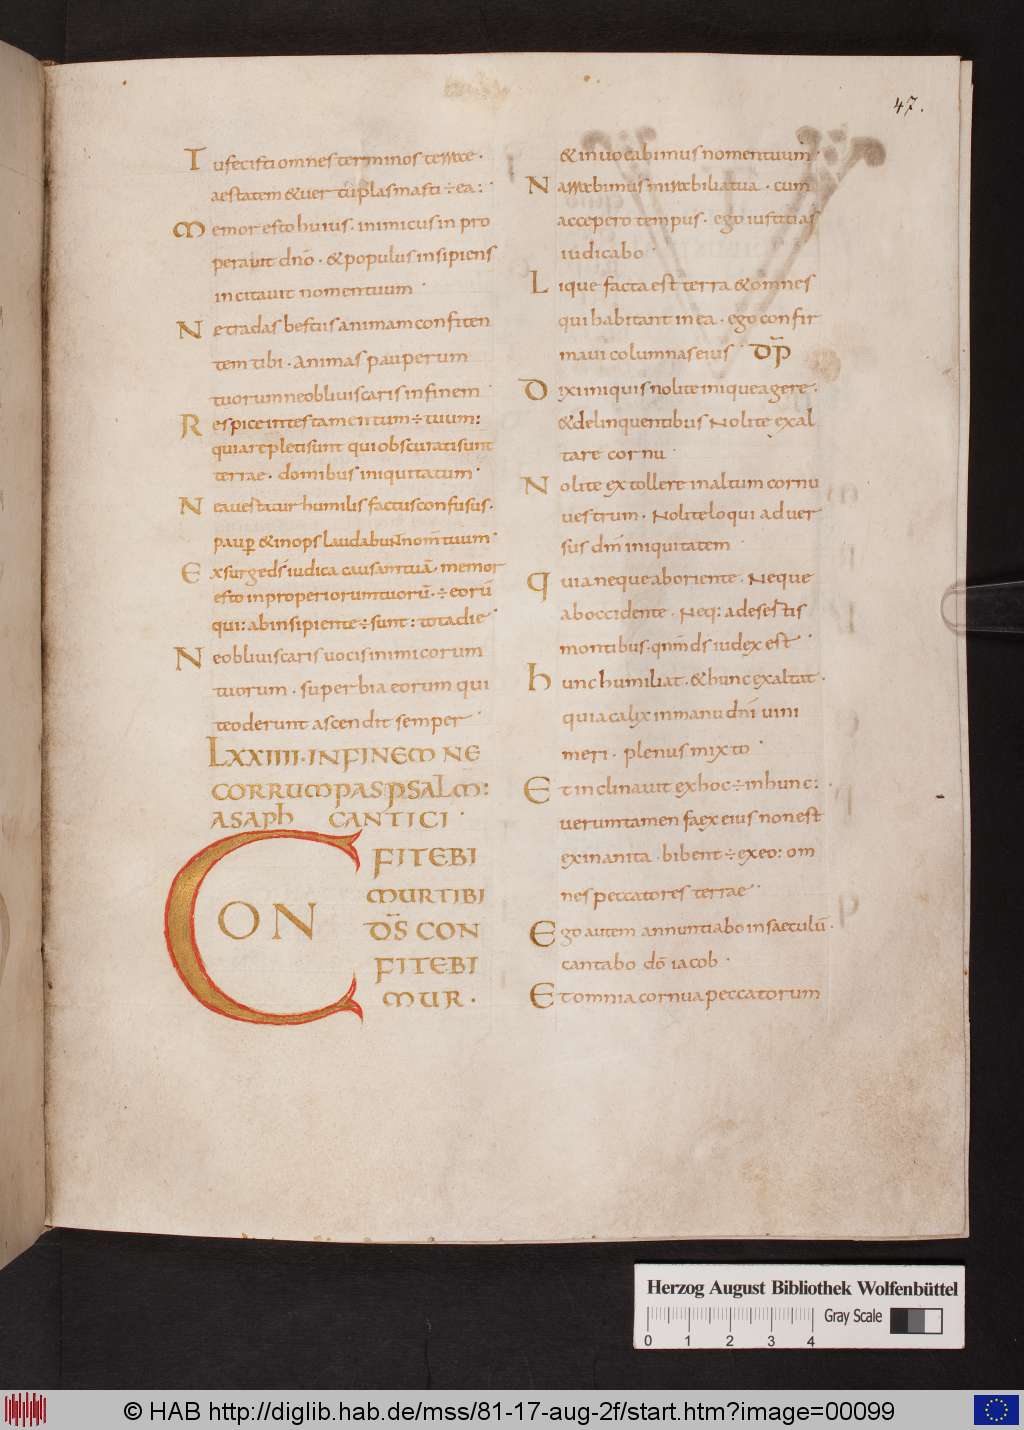 47.
Tu fecisti omnes terminos terrae .
aestatem & uer tu plasmasti ÷ ea :
Memor esto huius . inimicus in pro
perauit dño . & populus insipiens
incitauit nomen tuum
Ne tradas bestiis animam confiten
tem tibi . animas pauperum
tuorum ne obliuiscaris in finem
Respice in testamentum ÷ tuum :
quia repleti sunt qui obscurati sunt
terrae . domibus iniquitatum
Ne auertatur humilis factus confusus .
paup & inops laudabunt nom̄ tuum
Exsurge ds iudica causam tuā . memor
esto inproperiorum tuorū . ÷ eorū
qui : ab insipiente ÷ sunt : tota die
Ne obliuiscaris uocis inimicorum
tuorum . superbia eorum qui
te oderunt ascendit semper
LXXIIII . IN FINEM NE
CORRUMPAS PSALM :
ASAPH CANTICI
CON
FITEBI
MUR TIBI
DS CON
FITEBI
MUR .
& inuocabimus nomen tuum
Narrabimus mirabilia tua . cum
accepero tempus . ego iustitias
iudicabo
Lique facta est terra & omnes
qui habitant in ea . ego confir
maui columnas eius DP̄
Dixi iniquis nolite inique agere .
& delinquentibus Nolite exal
tare cornu
Nolite extollere in altum cornu
uestrum . Nolite loqui aduer
sus dm̄ iniquitatem
Quia neque ab oriente . Neque
ab occidente . Neq: a desertis
montibus . qnm̄ ds iudex est
hunc humiliat . & hunc exaltat .
quia calix in manu dni uini
meri . plenus mixto
Et inclinauit ex hoc ÷ in hunc :
uerumtamen faex eius non est
exinanita . bibent ÷ ex eo : om
nes peccatores terrae
Ego autem annuntiabo in saeculū .
cantabo dō iacob
Et omnia cornua peccatorum
Herzog August Bibliothek Wolfenbüttel
Gray Scale
0 1 2 3 4
© HAB http://diglib.hab.de/mss/81-17-aug-2f/start.htm?image=00099